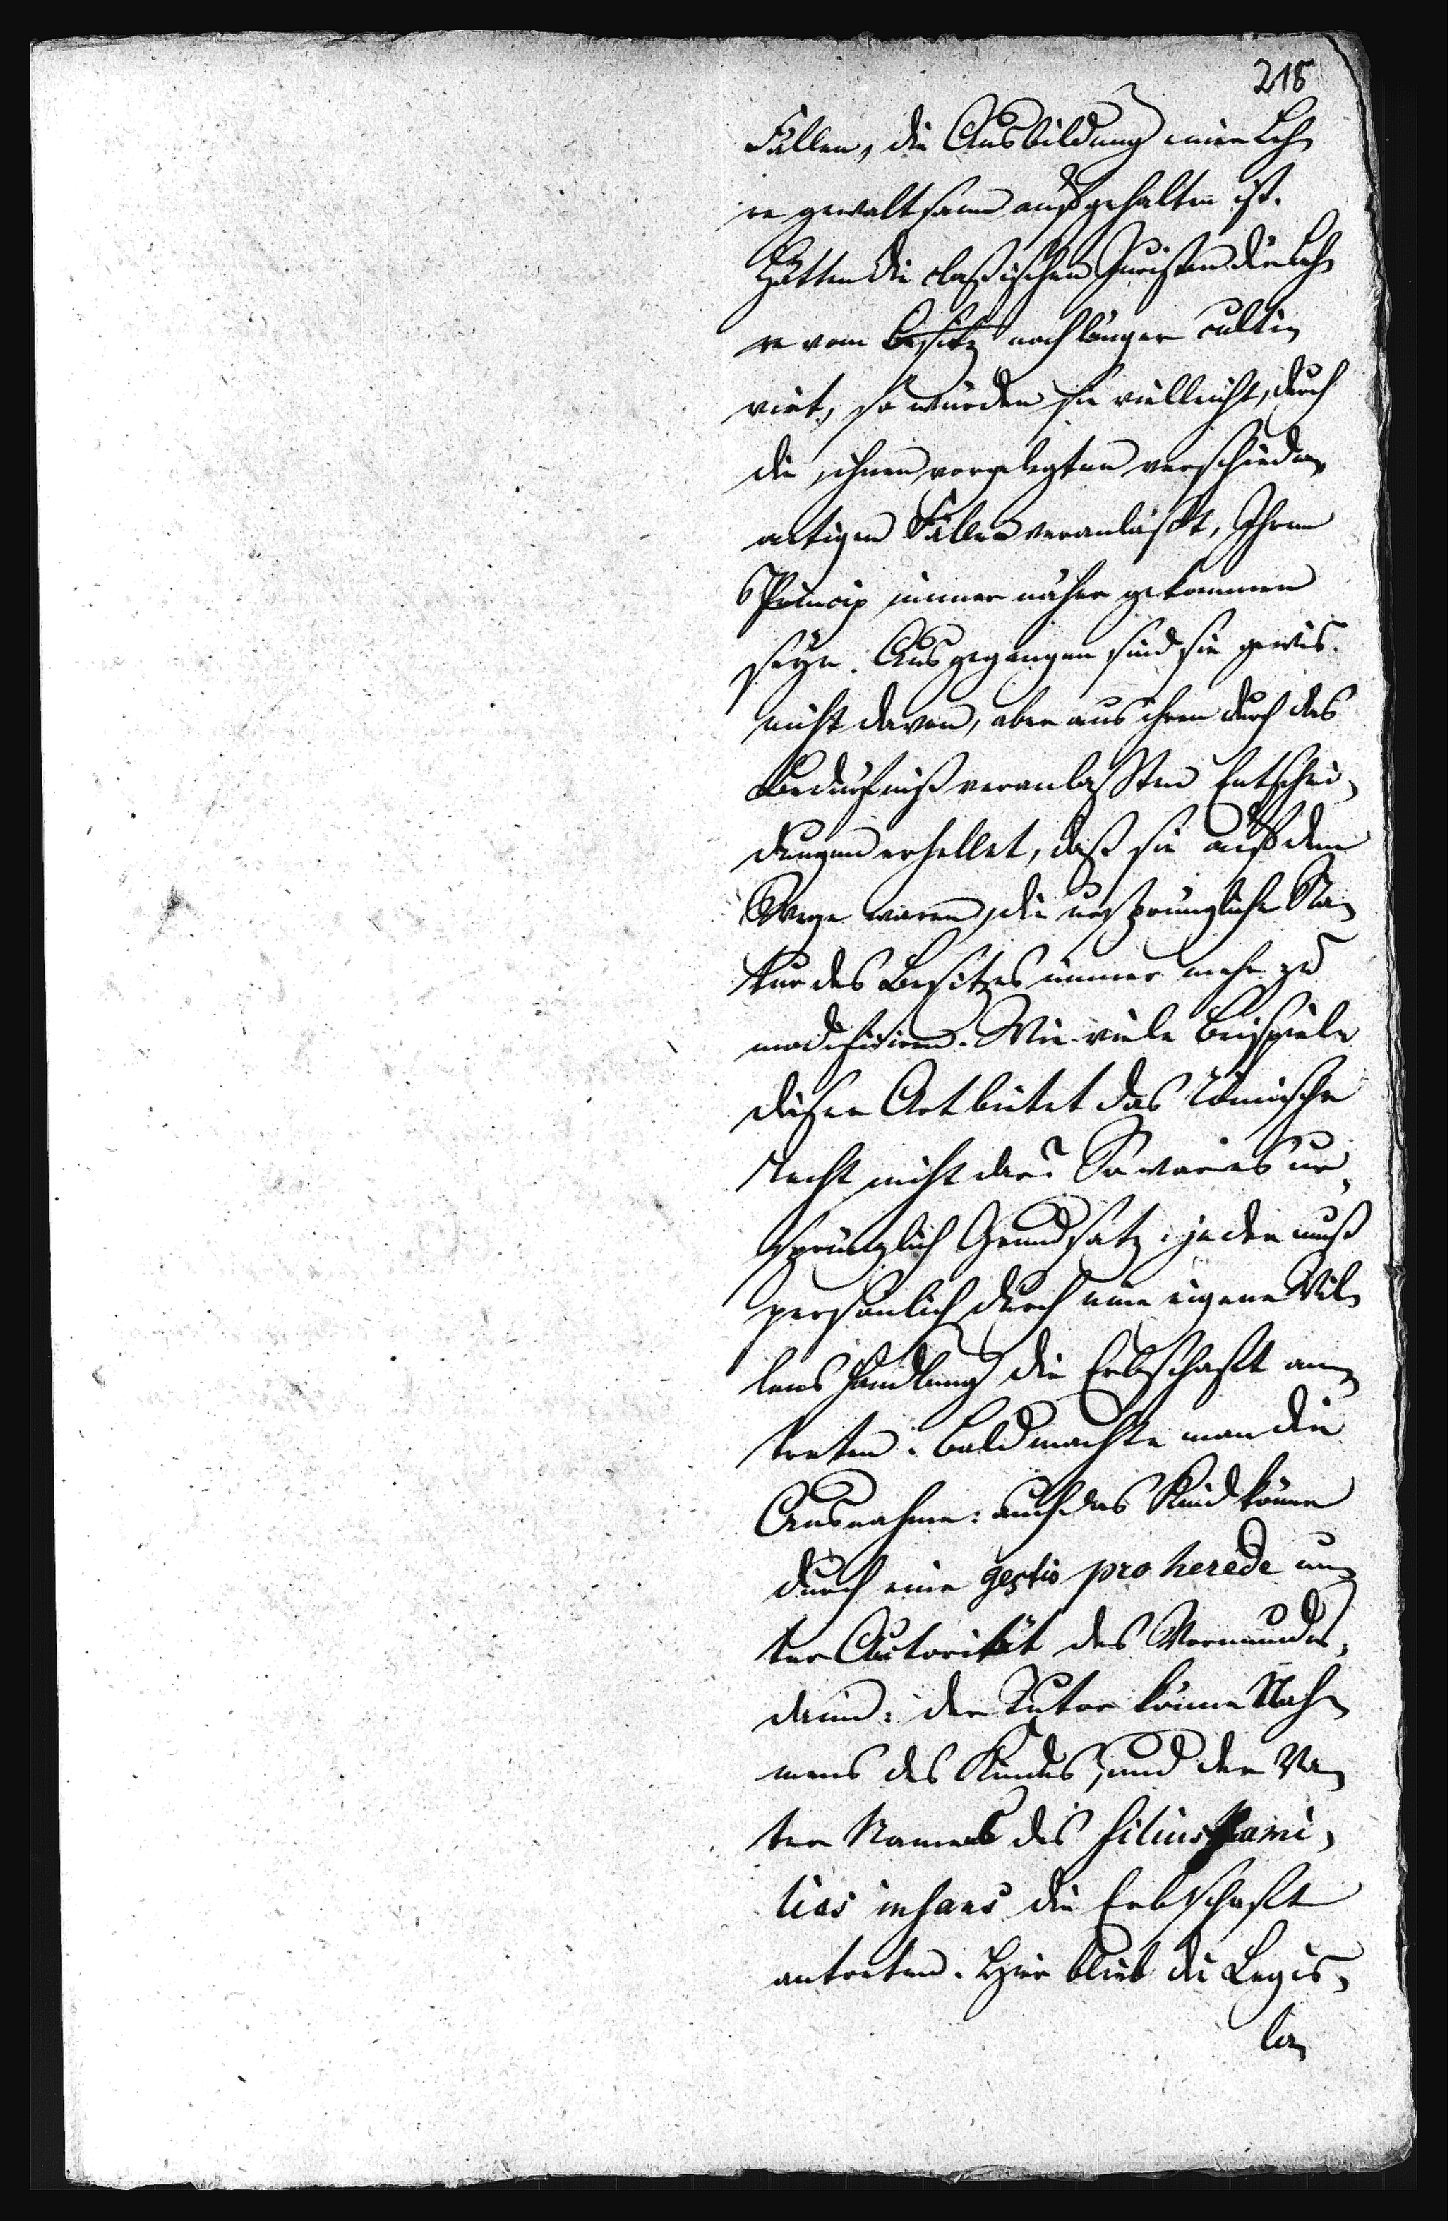 218
Fällen, die Ausbildung einer Leh„
re gewaltsam aufgehalten ist.
Hätten die classischen Juristen die Leh„
re vom Besitz noch länger culti„
virt, so würden sie vielleicht, durch
die ihnen vorgelegten verschieden„
artigen Fällen veranlaßt, Ihrem
Princip immer näher gekommen
seyn. Ausgegangen sind sie gewis
nicht davon, aber aus ihren durch das
Bedürfniß veranlaßten Entschei„
dungen erhellet, daß sie auf dem
Wege waren, die ursprüngliche Na„
tur des Besitzes immer mehr zu
modificiren. Wie viele Beispiele
dieser Art bietet das Römische
Recht nicht dar? So war es ur„
sprünglich Grundsatz: jeder muß
persönlich durch eine eigene Wil„
lens Handlung die Erbschaft an„
treten. Bald machte man die
Ausnahme: auch das Kind könne
durch eine gestio pro herede un„
ter Autorität des Vormundes,
dann: der Tutor könne Nah„
mens des Kindes, und der Va„
ter Namens des filius fami„
lias infans die Erbschaft
antreten. Hier blieb die Legis„
la„